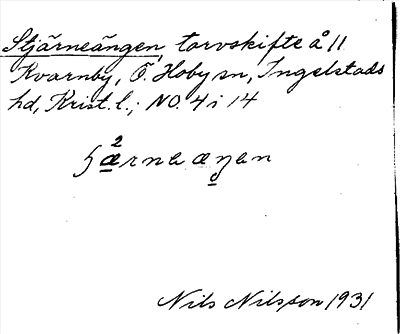 Stjärneängen, torvskifte å 11
Kvarnby, Ö. Hoby sn, Ingelstads
hd, Krist. l.; NO. 4 i 14
ʂ²ærnaæŋən
Nils Nilsson 1931